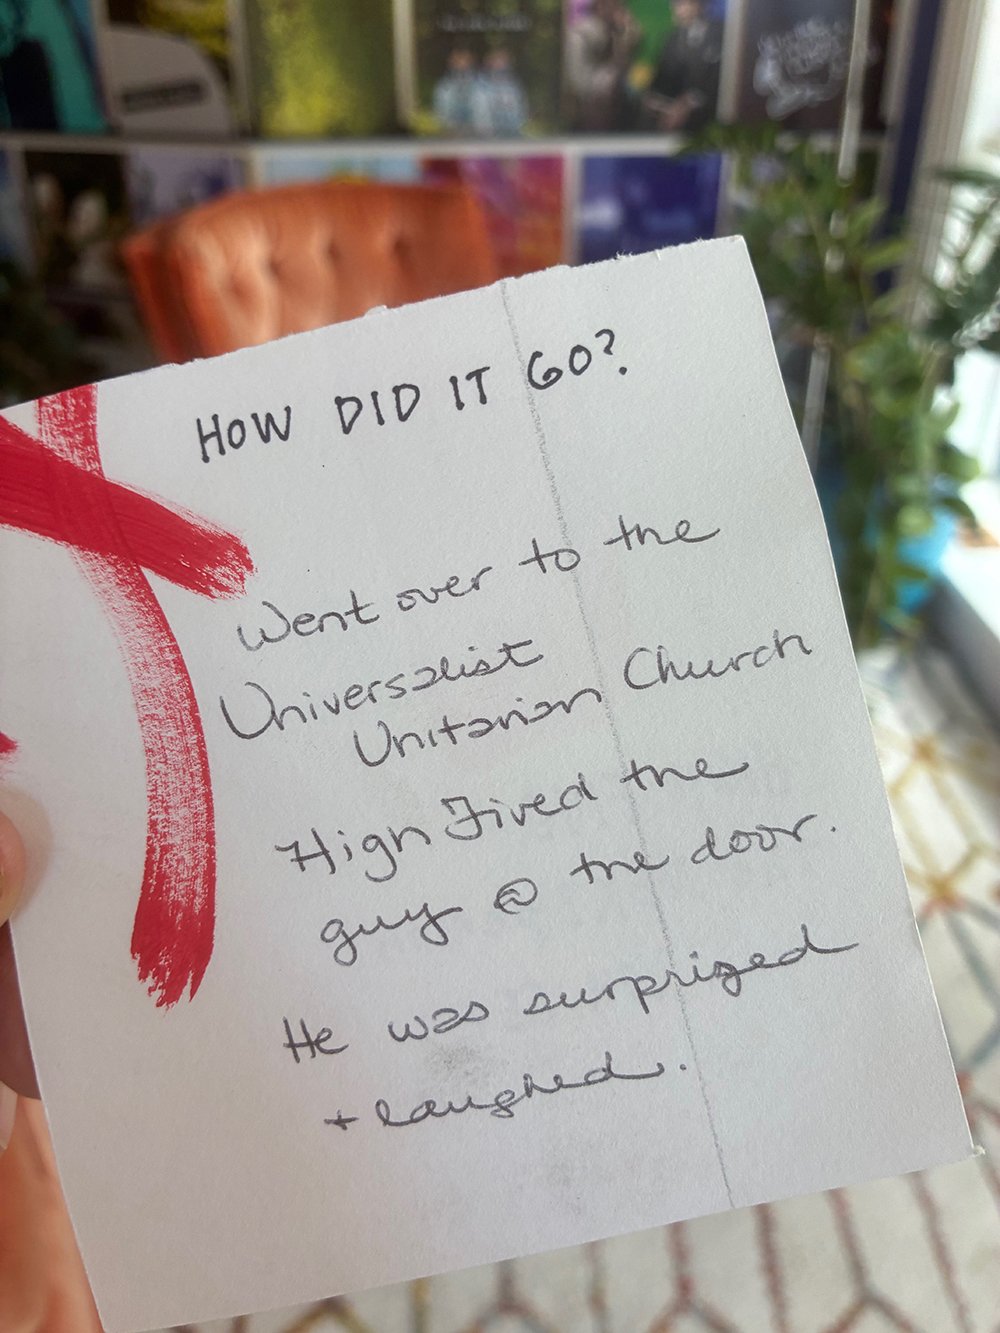 HOW DID IT GO?
Went over to the
Universalist
Unitarian Church
High Fived the
guy @ the door.
He was surprized
+ laughed.